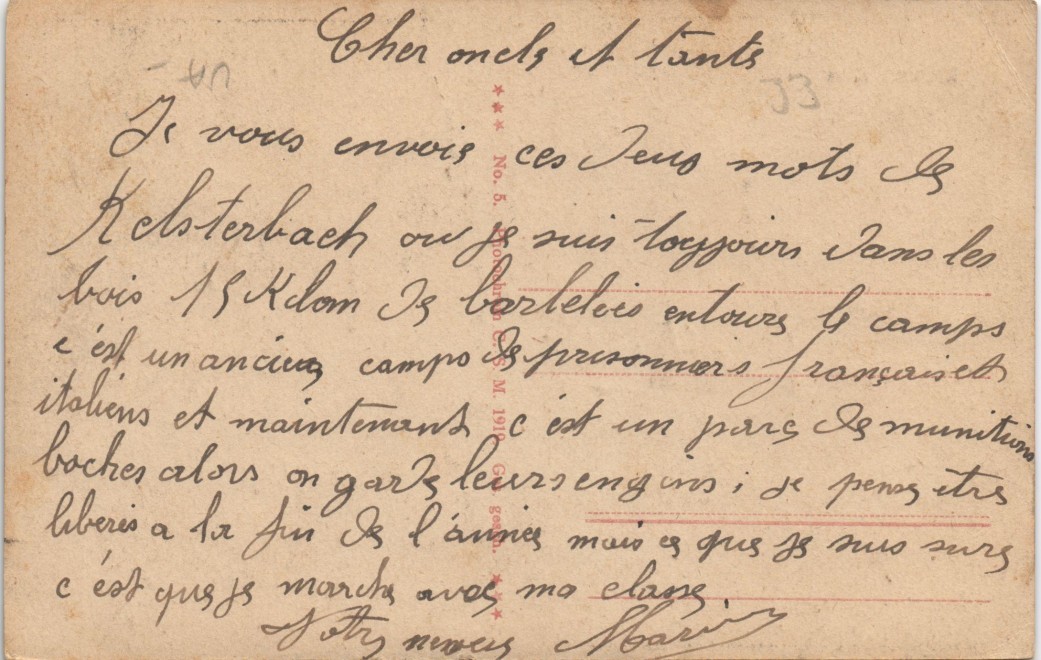 Cher oncle et tante
Je vous envoie ces deus mots de
Kelsterbach ou je suis toujours dans les
bois 15 Kilom de barbelées entoure le camps
c'est un ancien camps de prisonniers français et
italiens et maintenant c'est un parc de munitions
boches alors on garde leurs engins ; je pense être
liberés a la fin de l'année mais ce que je suis sure
c'est que je marche avec ma classe.
Votre neveu
★★★ No. 5. C. S. M. 1919 ★★★
33